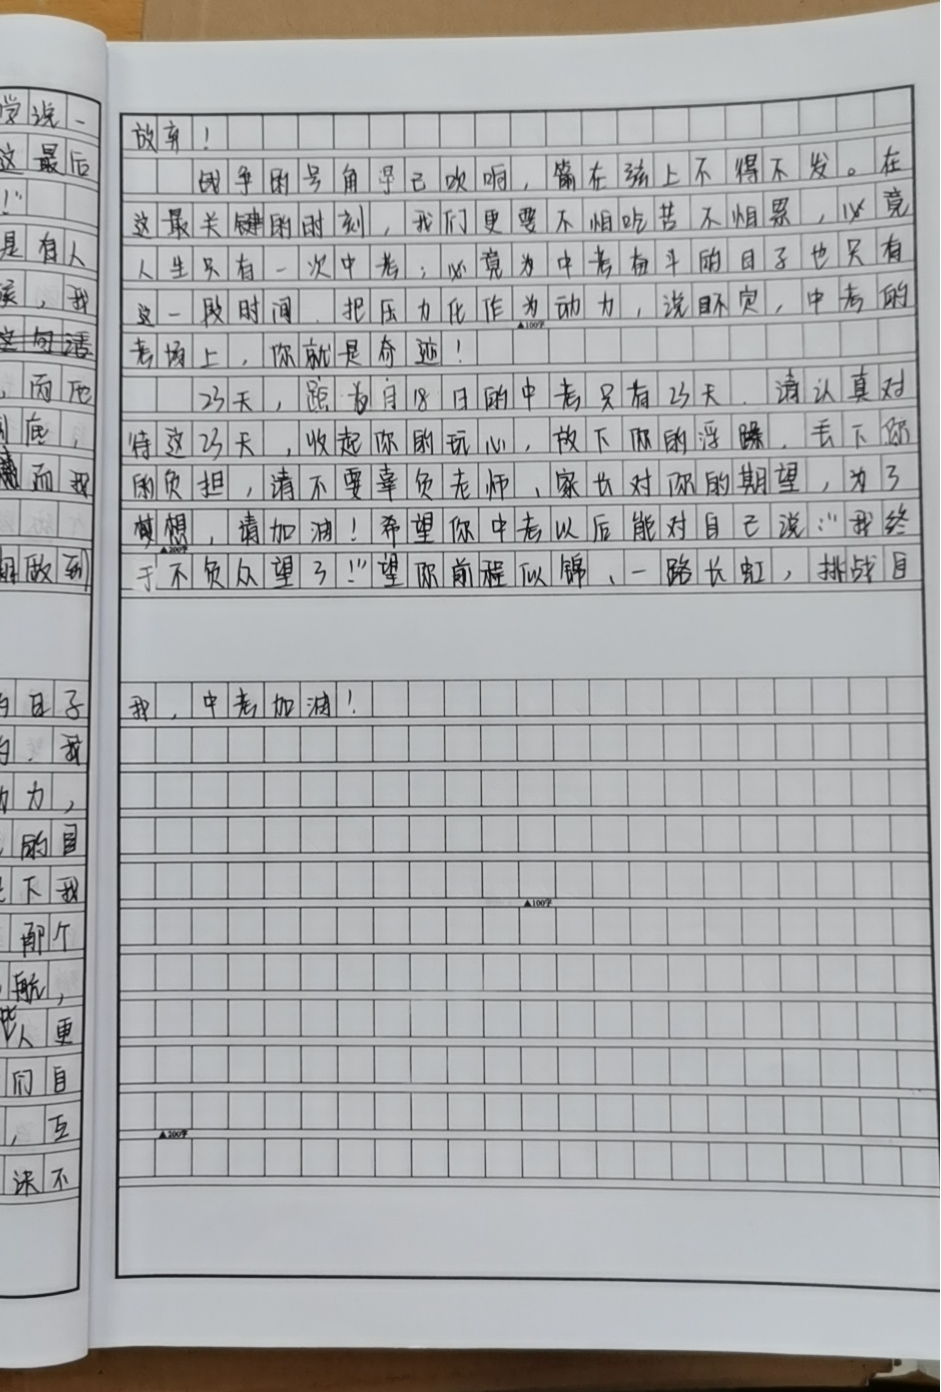 学说一
这最后
!"
是有人
候，我
这句话
，而厄
到底，
而我
相做到
的日子
的，我
动力，
的目
下我
那个
航，
人更
们自
，互
决不
放弃！
战争的号角早已吹响，箭在弦上不得不发。在
这最关键的时刻，我们更要不怕吃苦不怕累，必竟
人生只有一次中考；必竟为中考奋斗的日子也只有
这一段时间．把压力化作为动力，说不定，中考的
▲100字
考场上，你就是奇迹！
23天，距6月18日的中考只有23天．请认真对
待这23天，收起你的玩心，放下你的浮躁．丢下你
的负担，请不要辜负老师、家长对你的期望，为了
梦想，请加油！希望你中考以后能对自己说："我终
▲200字
于不负众望了!"望你前程似锦、一路长虹，挑战自
我，中考加油！
▲100字
▲200字